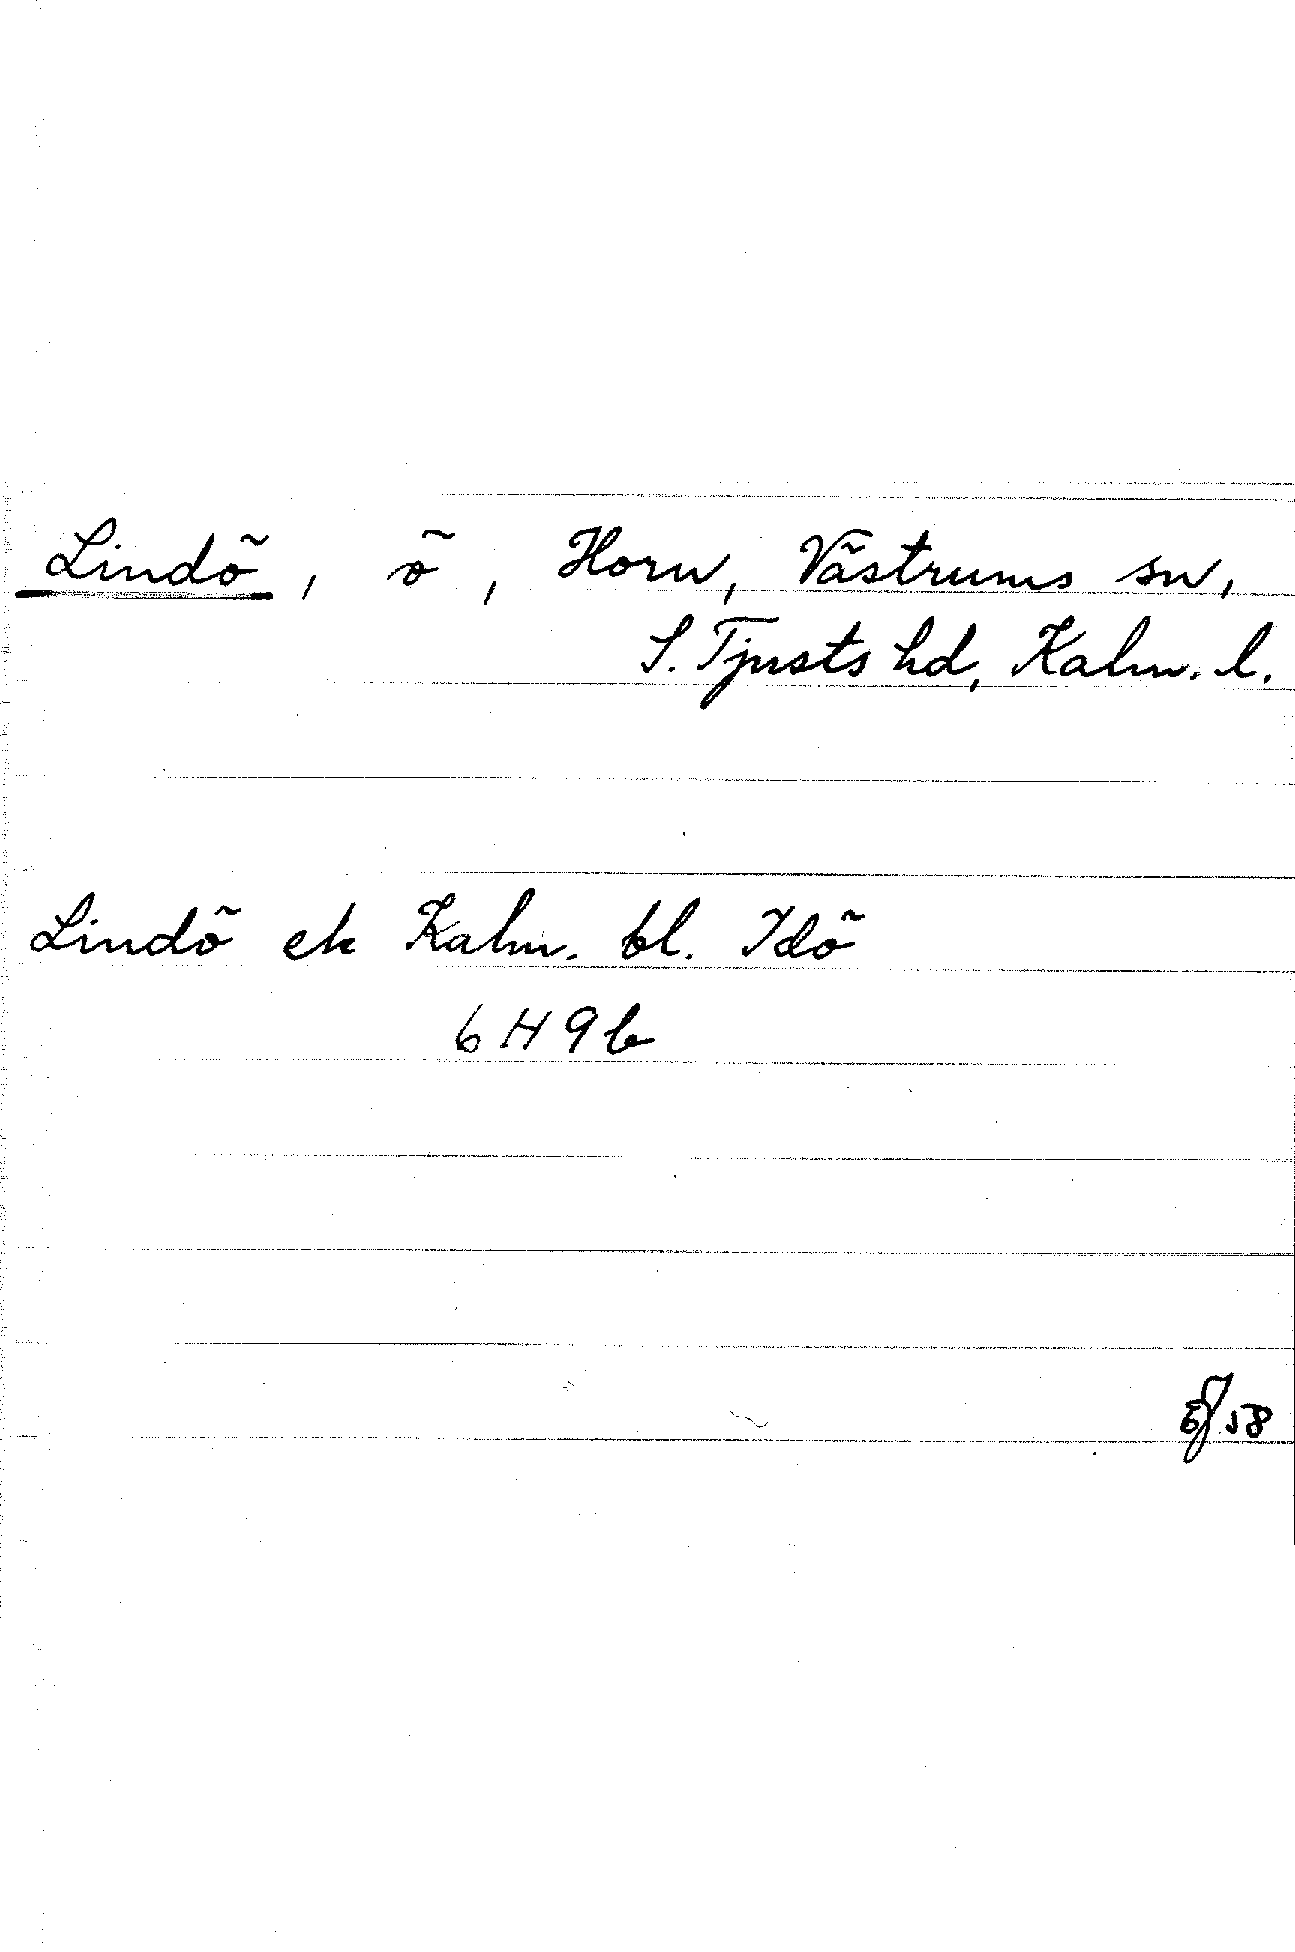 Lindö, ö, Horn, Västrums sn,
S. Tjusts hd, Kalm. l.
Lindö ek Kalm. bl. Idö
6 H 9 b
58